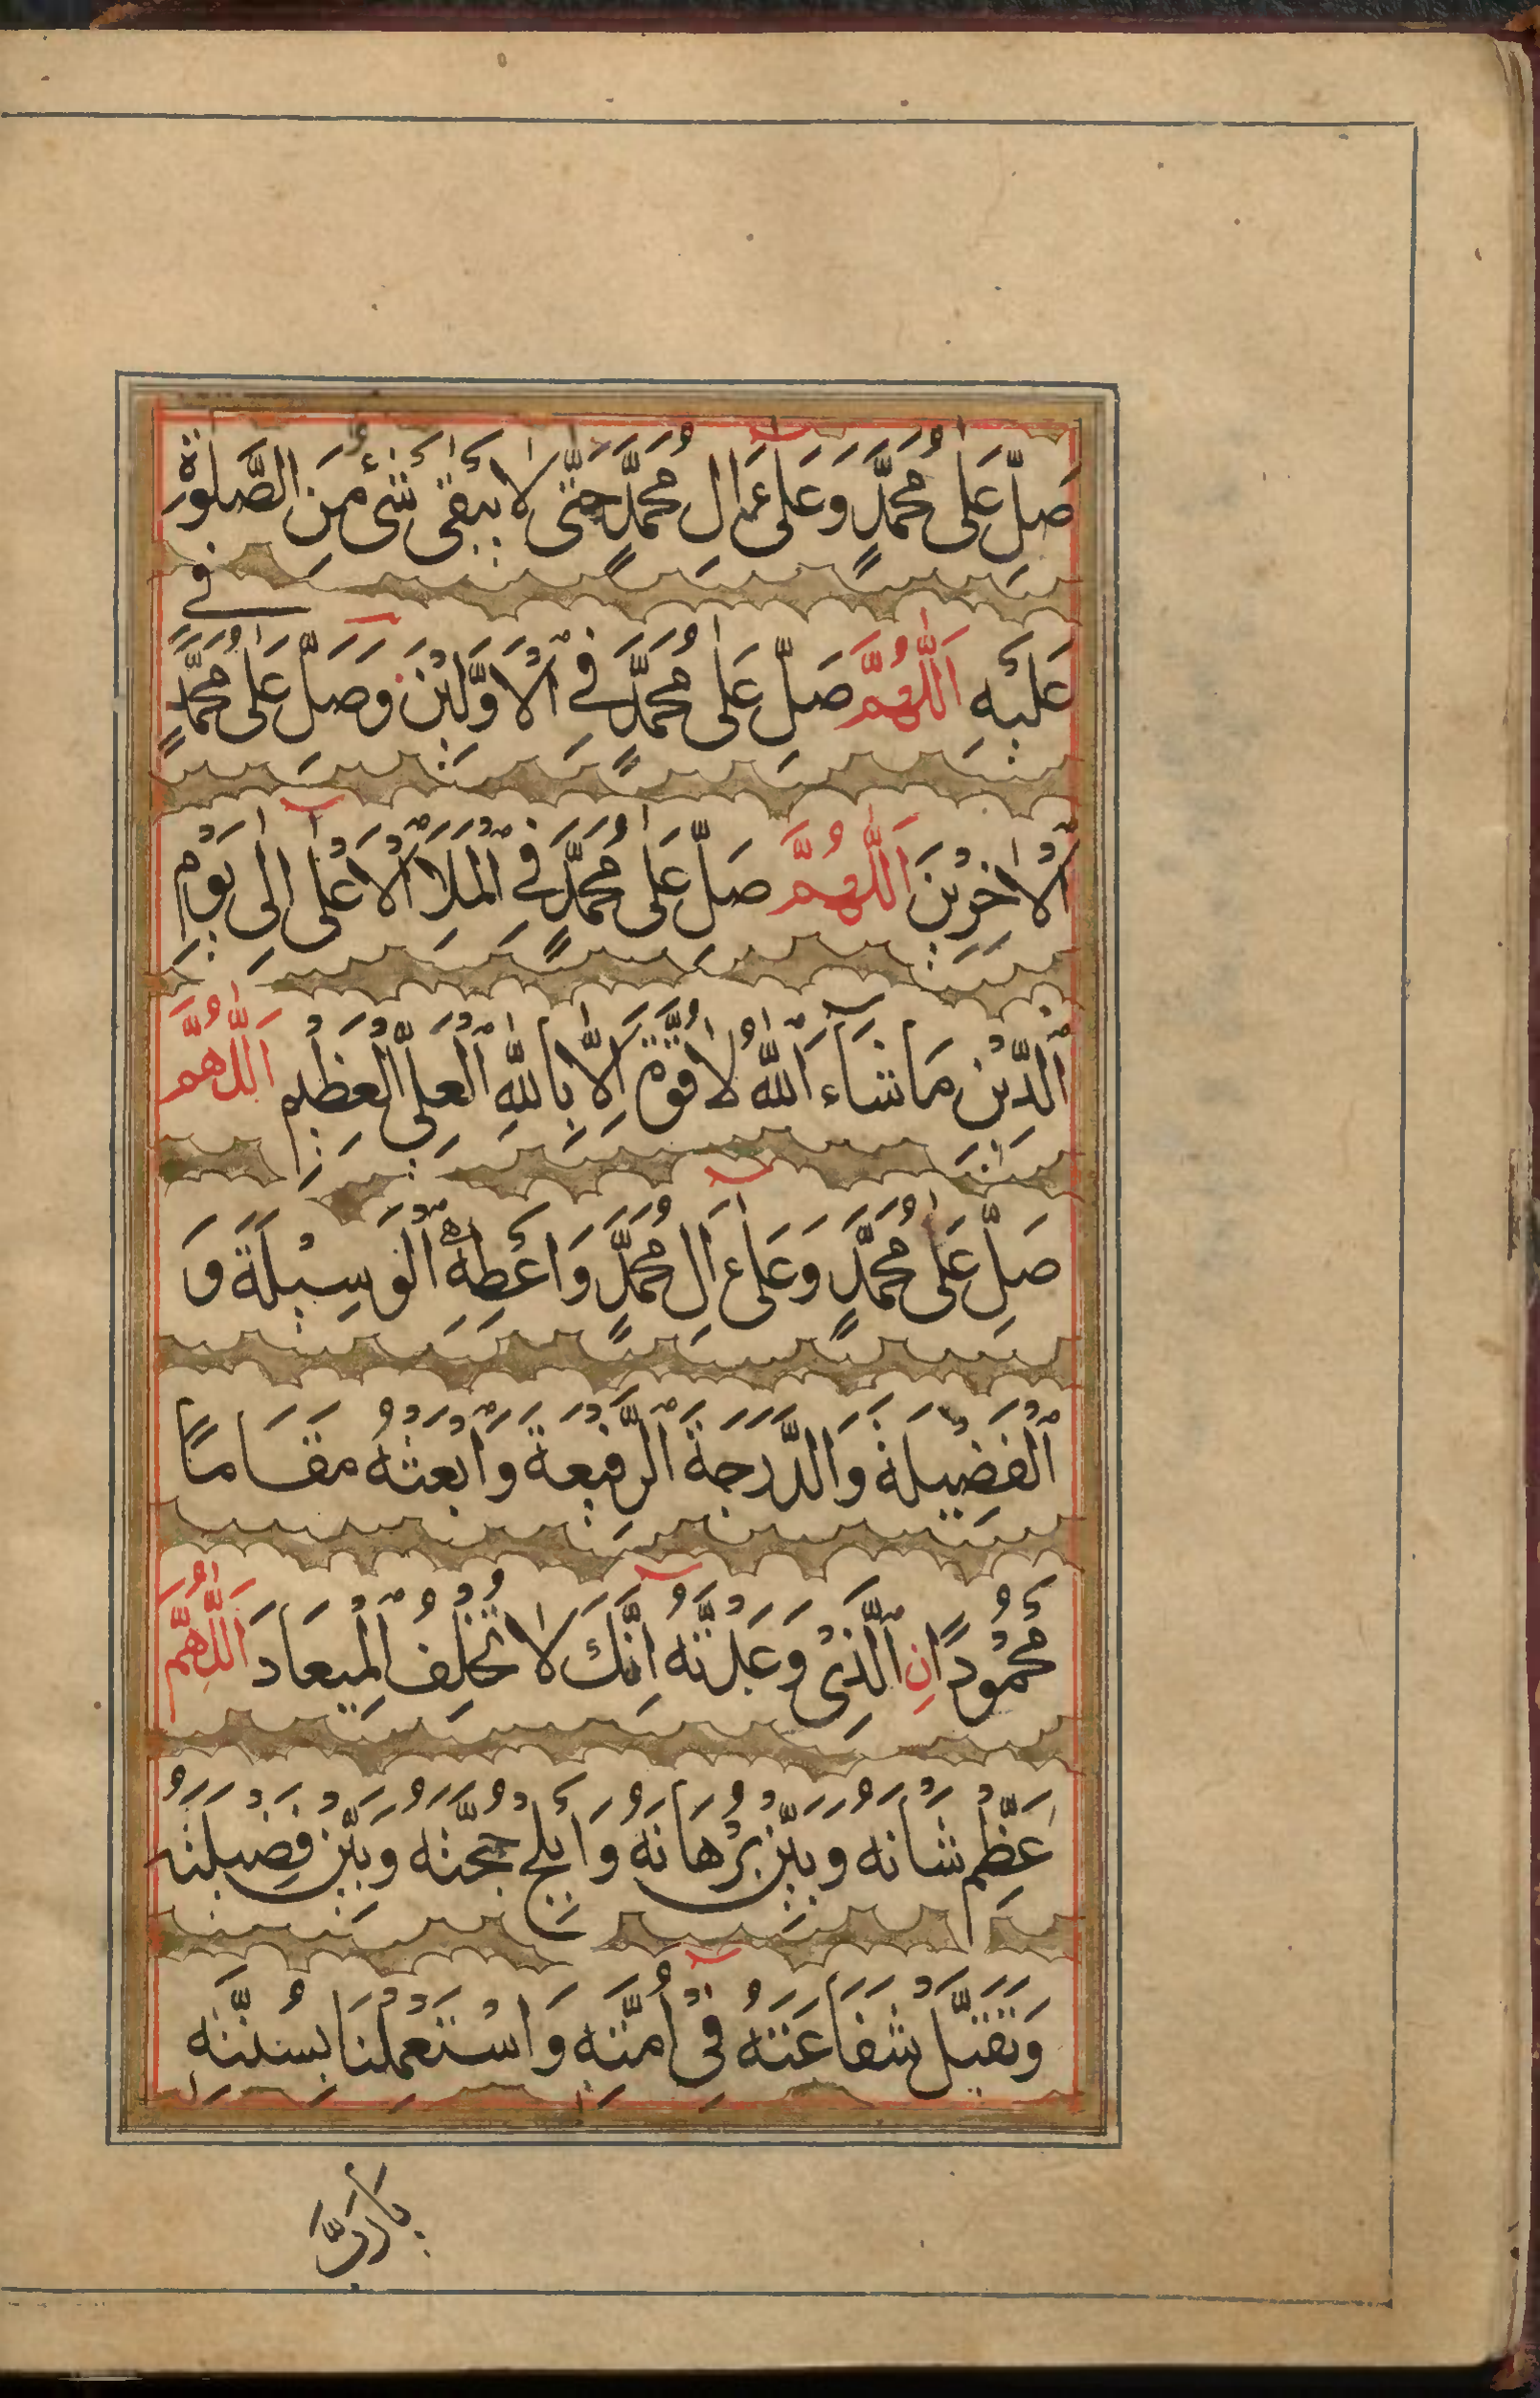 صَلِّ عَلٰى مُحَمَّدٍ وَعَلٰى اٰلِ مُحَمَّدٍ حَتّٰى لَا يَبْقٰى شَئٌ مِنَ الصَّلٰوةِ
عَلَيْهِ اَللّٰهُمَّ صَلِّ عَلٰى مُحَمَّدٍ فِي الْاَوَّلِيْنَ وَصَلِّ عَلٰى مُحَمَّدٍ فِي
الْاٰخِرِيْنَ اَللّٰهُمَّ صَلِّ عَلٰى مُحَمَّدٍ فِي الْمَلَاِ الْاَعْلٰى اِلٰى يَوْمِ
الدِّيْنِ مَا شَآءَ اللّٰهُ لَا قُوَّةَ اِلَّا بِاللّٰهِ الْعَلِيِّ الْعَظِيْمِ اَللّٰهُمَّ
صَلِّ عَلٰى مُحَمَّدٍ وَعَلٰى اٰلِ مُحَمَّدٍ وَاَعْطِهِ الْوَسِيْلَةَ وَ
الْفَضِيْلَةَ وَالدَّرَجَةَ الرَّفِيْعَةَ وَابْعَثْهُ مَقَامًا
مَحْمُوْدًا نِ الَّذِيْ وَعَدْتَّهُ اِنَّكَ لَا تُخْلِفُ الْمِيعَادَ اَللّٰهُمَّ
عَظِّمْ شَانَهُ وَبَيِّنْ بُرْهَانَهُ وَاَبْلِجْ حُجَّتَهُ وَبَيِّنْ فَضِيْلَتَهُ
وَتَقَبَّلْ شَفَاعَتَهُ فِيْ اُمَّتِهِ وَاسْتَعْمِلْنَا بِسُنَّتِهِ
يَا رَبَّ